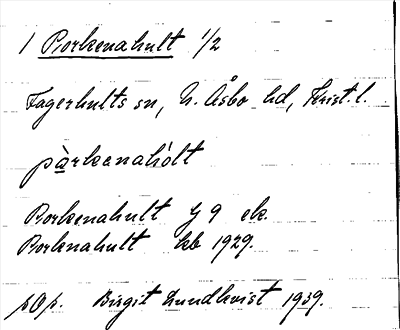 1 Borkenahult 1/2
Fagerhults sn, N. Åsbo hd, Krist. l.
pàrkanahólt
Borkenahult JG 9 ek.
Borkenahult kb 1929.
pOp. Birgit Lundkvist 1939.